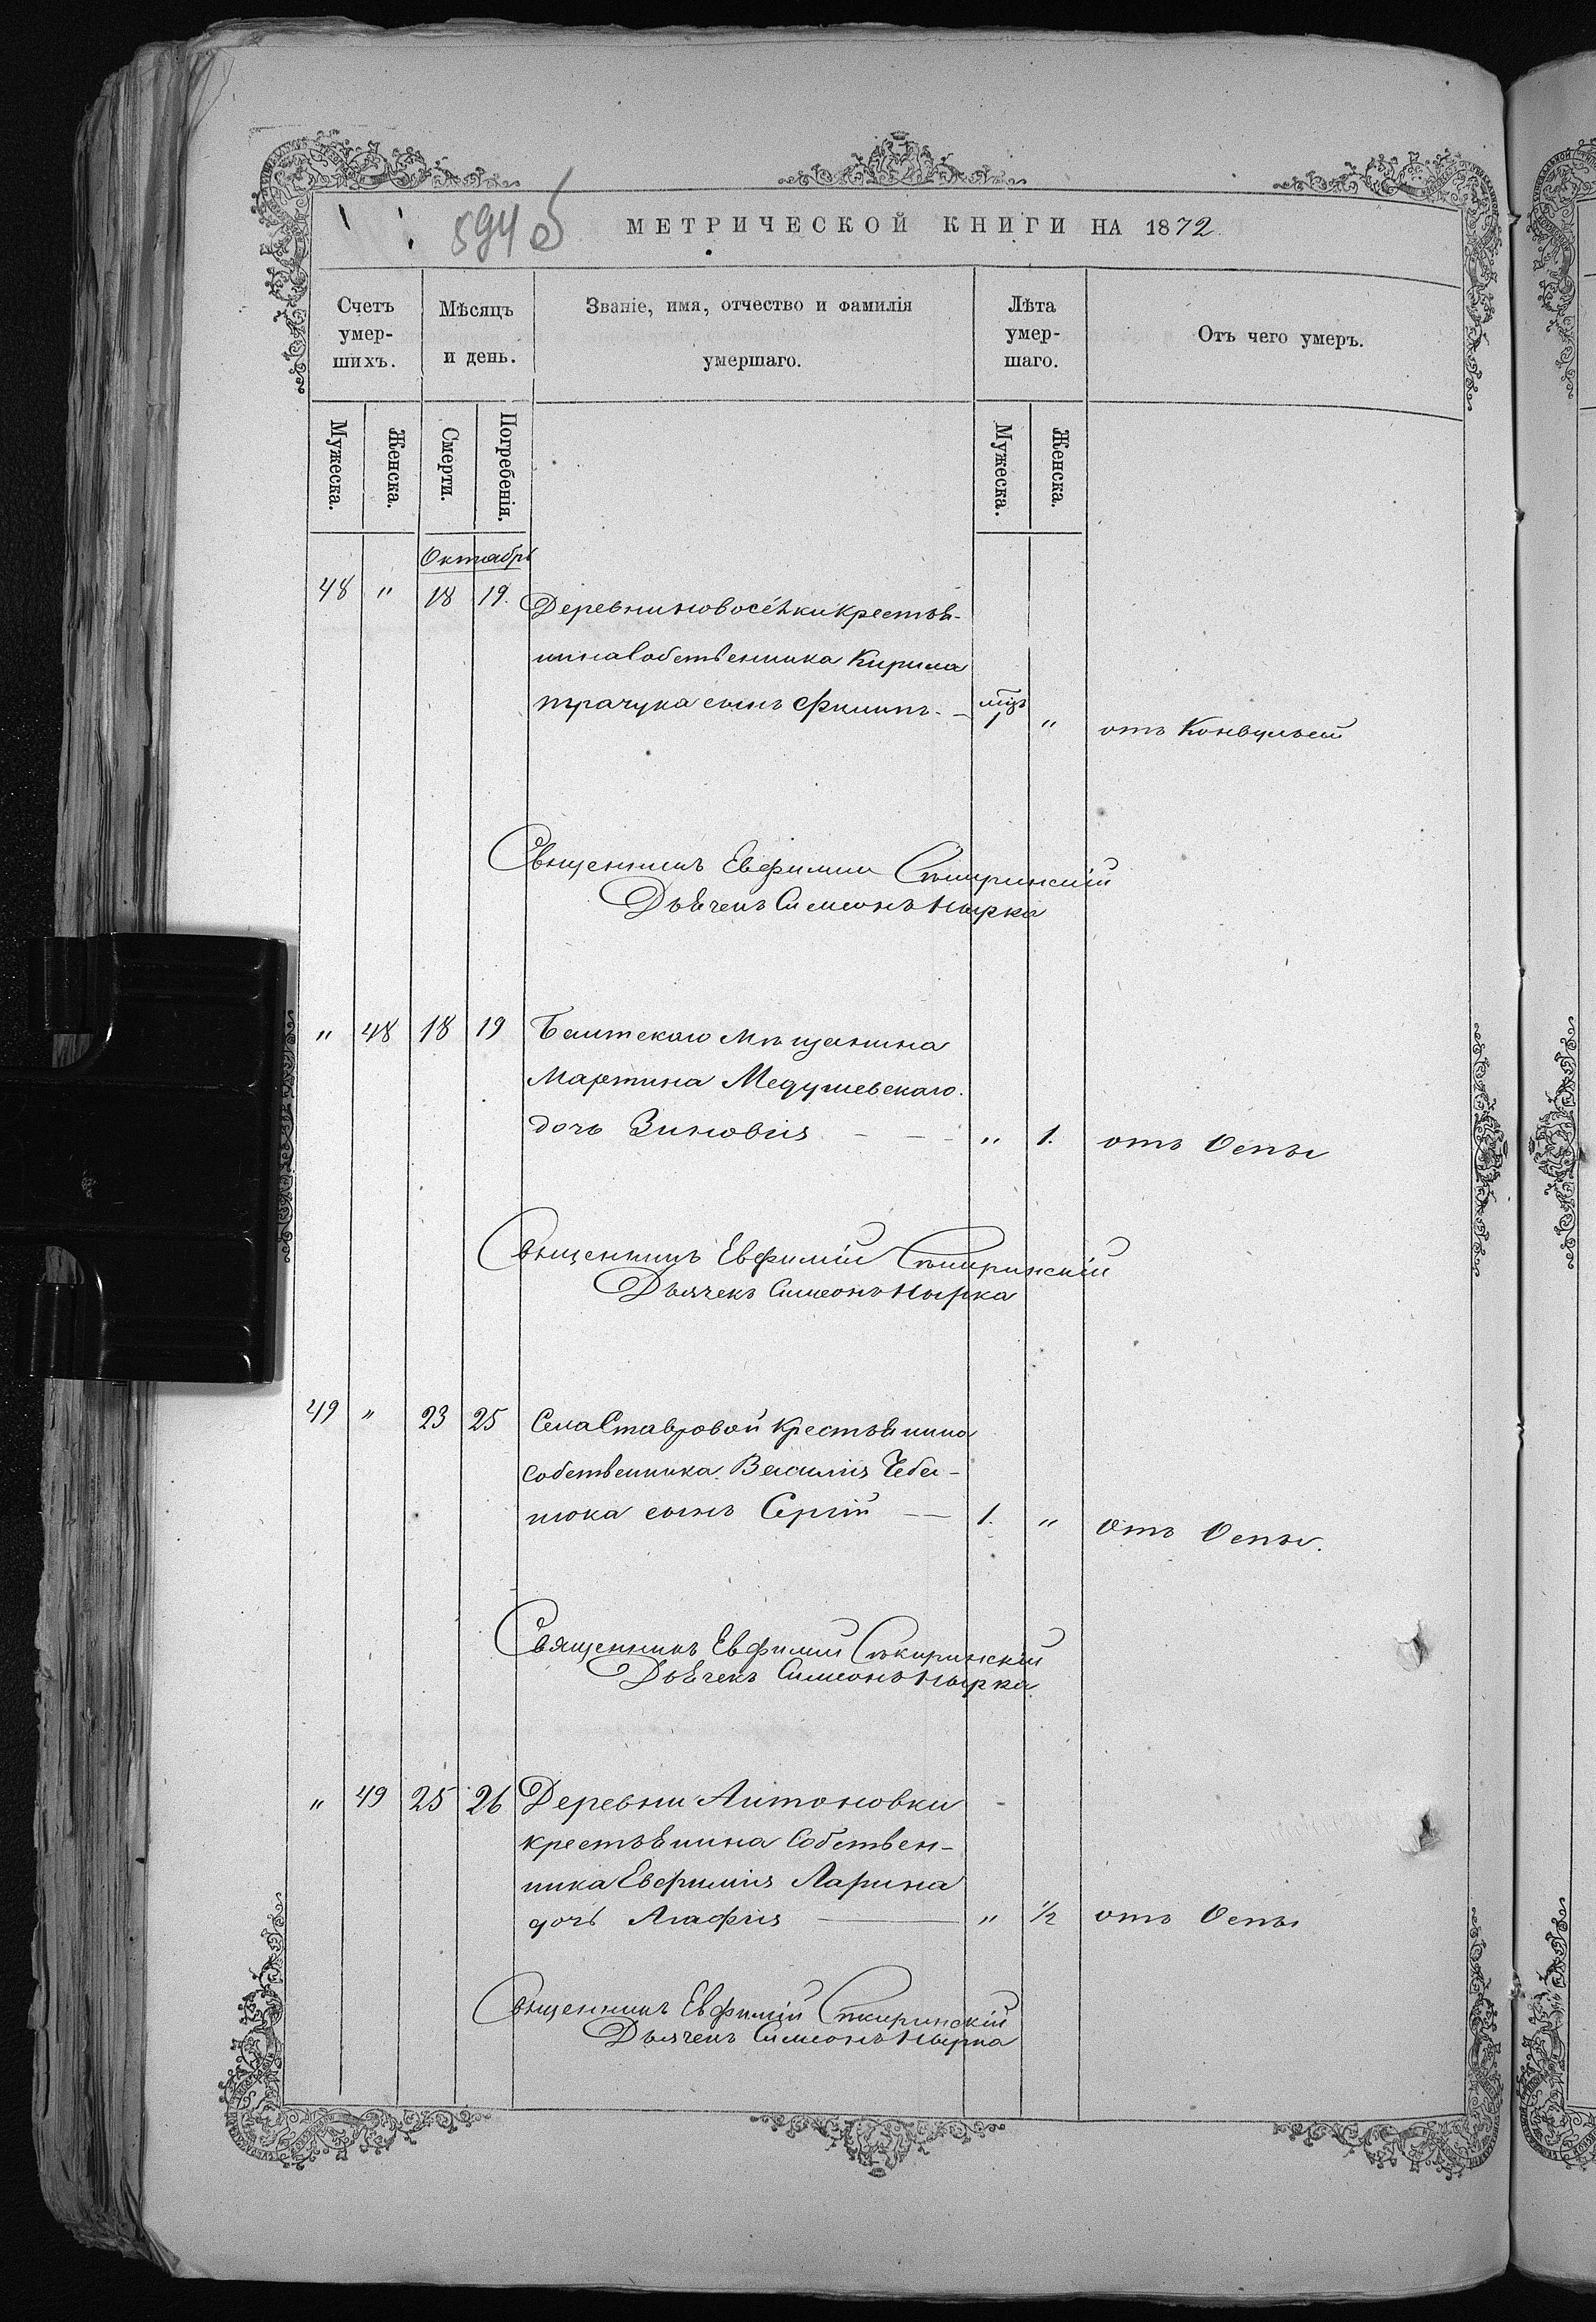 594 об
МЕТРИЧЕСКОЙ КНИГИ НА 1872
Счетъ умер- шихъ.
Мѣсяцъ и день.
Званіе, имя, отчество и фамилія умершаго.
Лѣта умер- шаго.
Отъ чего умеръ.
Мужеска. Женска. Смерти. Погребенія. Мужеска. Женска.
Октябрь
48 " 18 19. Деревни Новосёлки крестья-
нина Собственника Кирила
Трачука сынъ Филипъ. – мцъ 1 " отъ Конвульсій
Священникъ Евфимій Сѣкиринскій
Дьячекъ Симеонъ Нырка
" 48 18 19 Балтскаго Мѣщанина
Мартина Медушевскаго.
дочь Зиновія – – – " 1. отъ Оспы
Священникъ Евфимій Сѣкиринскій
Дьячекъ Симеонъ Нырка
49 " 23 25 Села Ставровой крестьянина
Собственника Василія Чеба-
нюка сынъ Сергій –– 1. " Отъ Оспы.
Священникъ Евфимій Сѣкиринскій
Дьячекъ Симеонъ Нырка
" 49 25 26 Деревни Антоновки
крестьянина Собствен-
ника Евфимія Ларина
дочь Агафія –– " 1/2 отъ Оспы
Священникъ Евфимій Сѣкиринскій
Дьячекъ Симеонъ Нырка